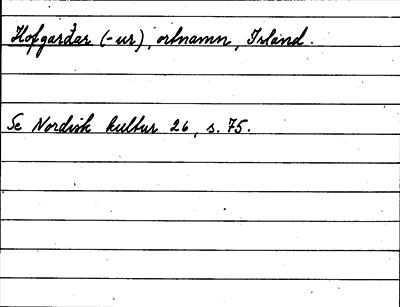 Hofgarðar (-ur), ortnamn, Island.
Se Nordisk kultur 26, s. 75.